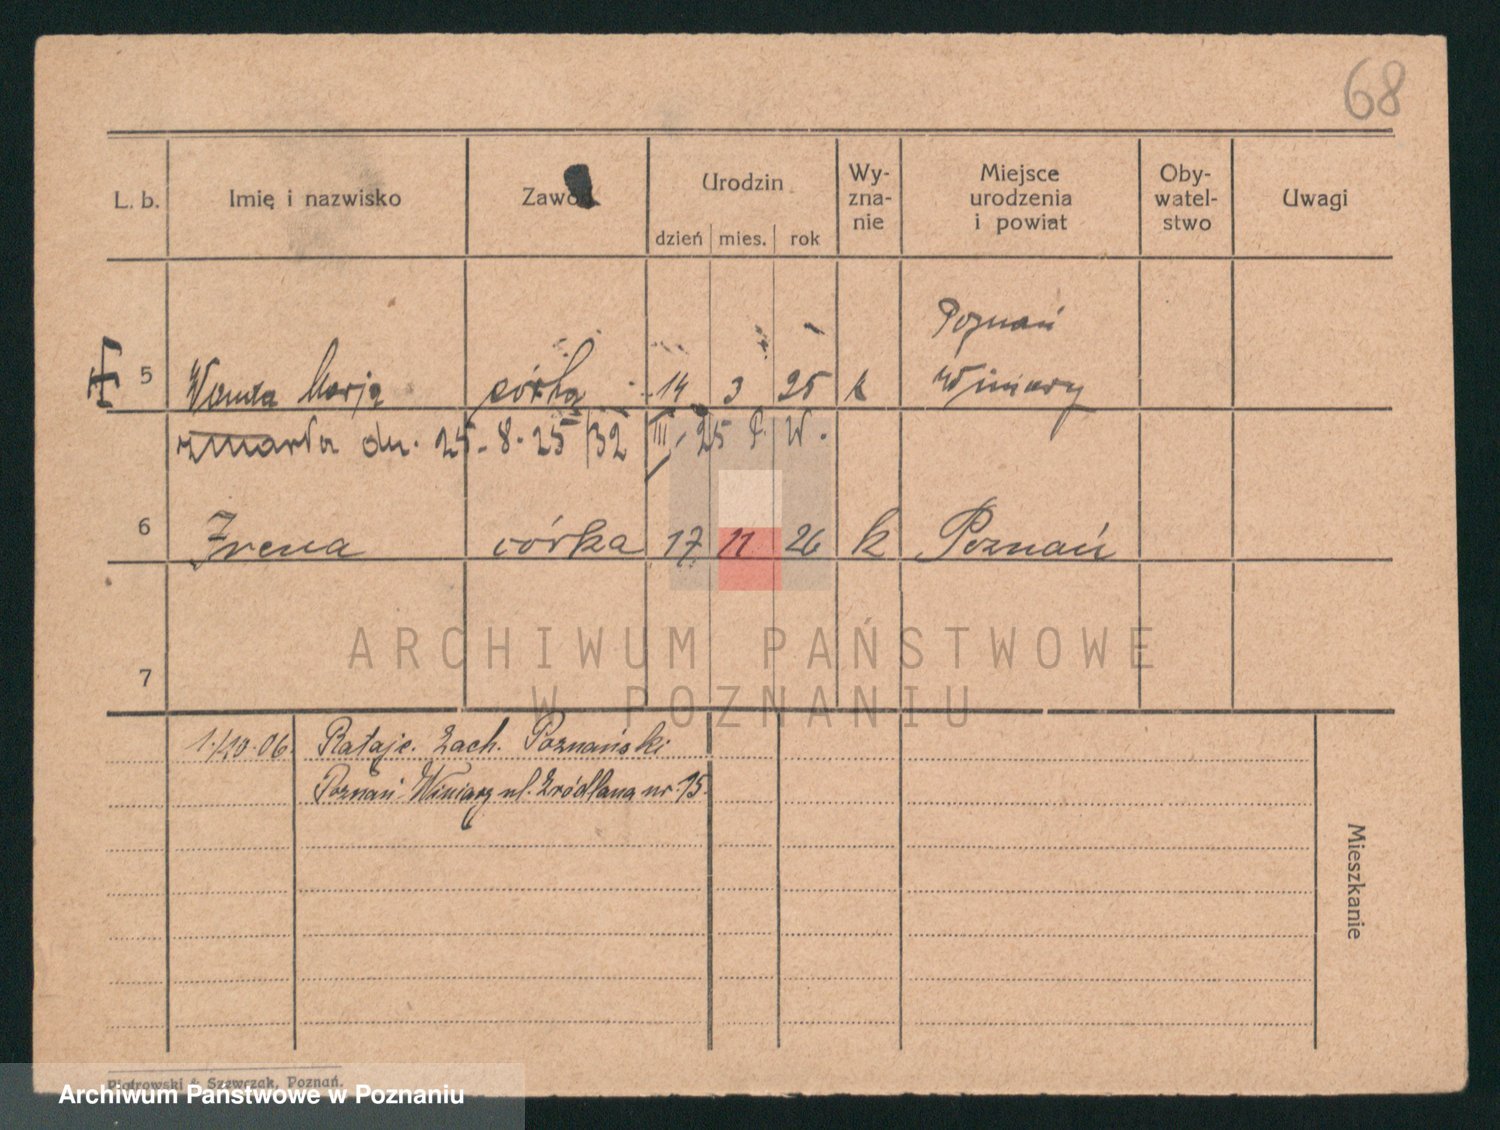 68
L. b. Imię i nazwisko Zawód Urodzin Wy- Miejsce Oby- Uwagi
zna- urodzenia watel-
nie i powiat stwo
dzień mies. rok
Poznań
5 Wanda Marja córka 14 3 25 k Winiary
zmarła dn. 25-8-25 /32 III, 25 P. W.
6 Irena córka 17 11 26 k Poznań
7
ARCHIWUM PAŃSTWOWE
W POZNANIU
1./10.06. Rataje. Zach. Poznański
Poznań Winiary ul. Źródlana nr 15.
Mieszkanie
Piotrowski & Szewczak, Poznań.
Archiwum Państwowe w Poznaniu